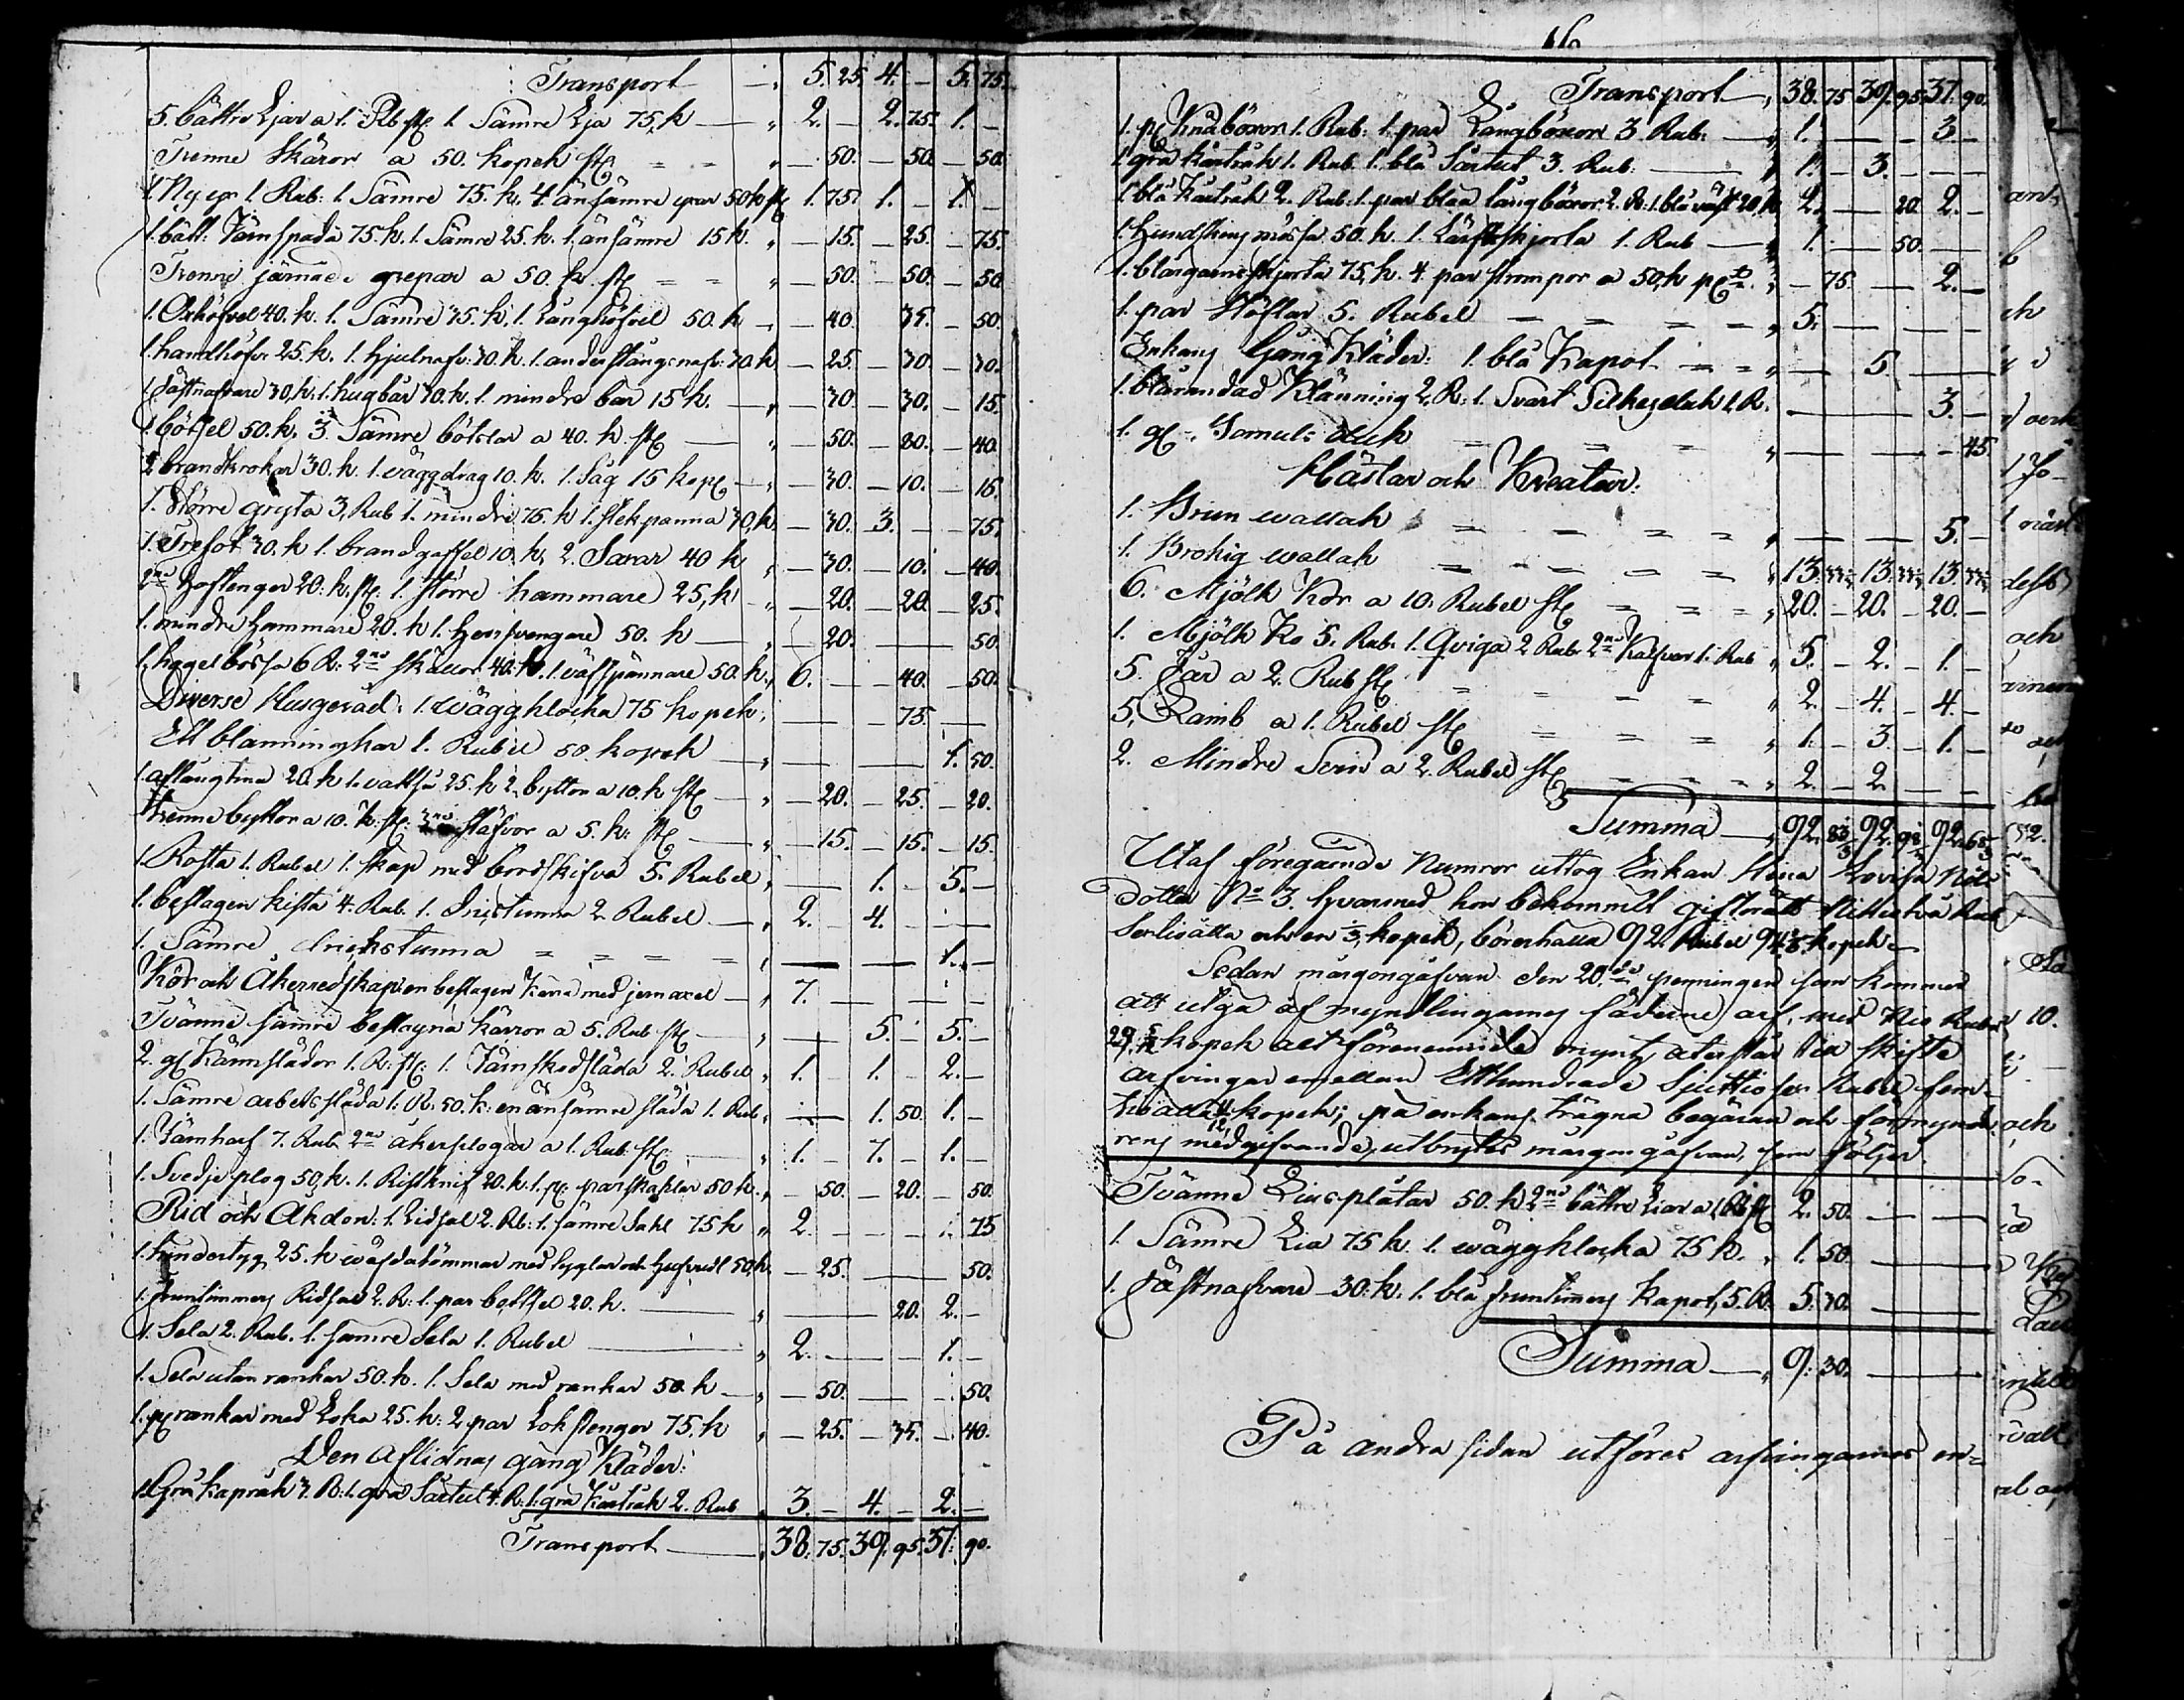 Transport — 5. 25. 4. — 5. 75.
5. bättre Ljar a 1. Rb st 1. Sämre Lja 75, k — 2. — 2. 75. 1. —
Trenne Skäror a 50. kopek st — 50. — 50. — 50.
1. Ny yx 1. Rub: 1. Sämre 75. k. 4. än sämre yxor 50 k st 1. 75. 1. — 1. —
1. bätt: Järnspada 75. k. 1. Sämre 25. k. 1. än sämre 15 k. — 15. — 25. — 75.
Trenne järnade grepar a 50. k. st — 50. — 50. — 50
1. Oxhöfvel 40. k. 1. Sämre 35. k, 1. Långhöfvel 50. k — 40. 35. — 50.
1. handhöfv: 25. k. 1. hjulnafv: 30. k. 1. anderstångs nafv: 30. k — 25. — 30. — 30.
1. Fästnafvare 30, k. 1. hugbär 30. k. 1. mindre bär 15 k. — 30. — 30. — 15.
1. bötsel 50. k. 3. Sämre bötslar a 40. k st — 50. — 80. — 40.
2 brandkrokar 30. k. 1. väggdrag 10. k. 1. Såg 15 kop — 30. — 10. — 15.
1. Större gryta 3, Rub 1. mindre 75. k 1. stekpanna 30, k — 30. 3. — — 75.
1. Trefot 30. k 1. brandgaffel 10. k, 2. Saxar 40 k — 30. — 10. — 40.
2ne Hoftenger 20. k. st. 1. större hammare 25, k — 20. — 20. — 25.
1. mindre hammare 20. k 1. 50. k — 20. — 50.
1. hagelbössa 6 R: 2ne skällor 40. k. 1. väfspännare 50. k. 6. — 40. — 50.
Diverse Husgeråd: 1. väggklocka 75 kopek, — 75. —
Ett blanninghar 1. Rubel 50. kopek — 1. 50.
1. aflångtina 20. k 1. vattså 25. k 2. byttor a 10. k st — 20. — 25. — 20.
trenne byttor a 10. k. st. 3ne stäfvor a 5. k. st — 15. — 15. — 15.
1. Rosta 1. Rubel 1. skåp med bordskifva 5. Rubel — 1. — 5. —
1. beslagen kista 4. Rub. 1. Drickstunna 2. Rubel — 2. — 4. —
1. Sämre drickstunna — 1. —
Kör och Åkerredskap: en beslagen kärra med jernaxel — 7. —
Tvänne sämre beslagna kärror a 5. Rub st — 5. — 5. —
2. gl Kännslädor 1. R. st. 1. Järnskodsläda 2. Rubel 1. — 1. — 2. —
1. Sämre arbetssläda 1. R. 50. k. en än sämre släda 1. Rub. — 1. 50. 1. —
1. Järnharf 7. Rub. 2ne åkerplogar a 1. Rub. st. 1. — 7. — 1. —
1. Svedjeplog 50, k. 1. Ristknif 20. k. 1. par skaklar 50 k. — 50. — 20. — 50.
Rid och Åkdon: 1. Ridsal 2. Rb: 1. sämre Sahl 75 k 2. — — 75
1. tyg 25. k väfda tömmar med lyglar och hufvudl 50. k — 25. — 50.
1. fruntimmers Ridsal 2. R: 1. par betssel 20. k. — 20. 2. —
1. Sela 2. Rub. 1. sämre Sela 1. Rubel — 2. — 1. —
1. Sela utan rankar 50. k. 1. Sela med rankar 50. k — 50. — 50.
1. p rankar med Loka 25. k. 2 par Lokstenger 75. k — 25. — 35. — 40.
Den Aflidnas gång Kläder:
1. Grå kapråk 3. R: 1. grå Surtut 4. R. 1. grå kasträk 2. Rub 3. — 4. — 2. —
Transport — 38. 75. 39. 95. 37. 90.
16
Transport — 38. 75. 39. 95. 37. 90.
1. p Knäböxor 1. Rub: 1. par Långböxor 3. Rub. — 1. — 3. —
1. grå kasträk 1. Rub 1. blå Surtut 3. Rub. — 1. — 3. —
1. blå kasträk 2. Rub. 1. par blåa långböxor 2. R. 1. blå väst 20, k 2. — 20. 2. —
1. Hundskins mössa 50. k. 1. Lärftskjorta 1. Rub — 1. — 50. —
1. blångarnsskjorta 75, k. 4. par strumpor a 50, k — 75. — 2. —
1. par Stöflar 5. Rubel — 5. —
Enkans Gång Kläder: 1. blå Kapot — 5. —
1. blårandad Klänning 2, R. 1. Svart Silkesduk 1. R. — 3. —
1. gl. Bomuls duk — 45.
Hästar och Kreatur:
1. Brun wallak — 5. —
1. Brokig wallak 13. 33⅓ 13. 33⅓ 13. 33⅓
6. Mjölk Kor a 10. Rubel st 20. — 20. — 20. —
1. Mjölk Ko 5. Rub. 1. Qviga 2 Rub. 2ne Kalfvar 1. Rub 5. — 2. — 1. —
5. Får a 2. Rub st 2. — 4. — 4. —
5. Lamb a 1. Rubel st 1. — 3. — 1. —
2. Mindre Svin a 2. Rubel st 2. — 2. — —
Summa — 92. 83⅓ 92. 98⅓ 92. 68⅓
Utaf föregående Numror uttog Enkan Stina Lovisa Nils
dotter No 3. hvarmed hon bekommit giftorätt Nittiotvå Rub
Sextioåtta och en ⅓ kopek, börerhalla 92. Rubel 94⅓ kopek
Sedan morgongåfvan den 20de penningen som kommer
att utgå af myndlingarnes fäderne arf, med Nio Rubel
29 kopek acth förenemnde mynt, återstår till skifte
arfvingar emellan Etthundrade Sjuttiosex Rubel fem
kopek; på enkans trägna begäran och förmynda
rens medgifvande, utbrytes morgongåfvan, som följer.
Tvänne Liusplåtar 50. k 2ne bättre Liar a 1 Rb st 2. 50. —
1 Sämre Lia 75 k. 1. väggklocka 75 k. 1. 50. —
1. Fästnafvare 30. k. 1. blå fruntimers Kapot, 5. R. 5. 30. —
Summa — 9. 30. —
På andra sidan utföres arfvingarnes en=